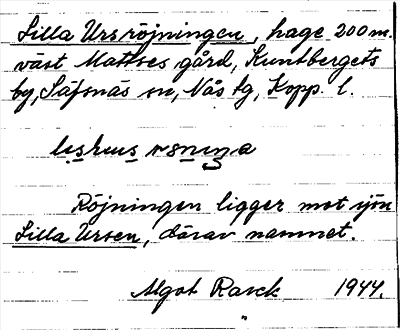 Lilla Ursröjningen, hage 200 m.
väst Mattses gård, Kuntbergets
by, Säfsnäs sn, Nås tg, Kopp. l.
Röjningen ligger mot sjön
Lilla Ursen, därav namnet.
Algot Rarck 1944.